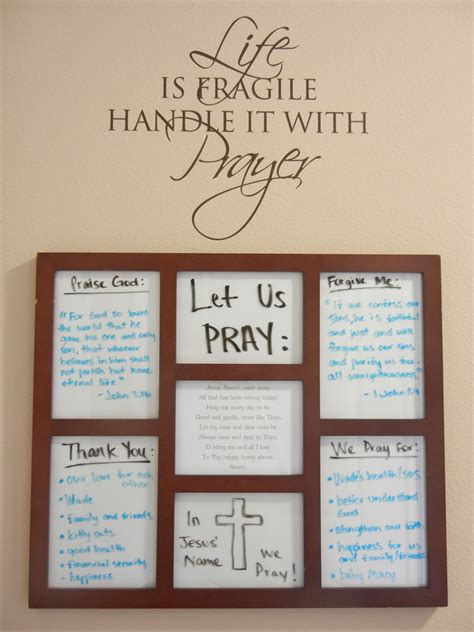 Life
IS FRAGILE
HANDLE IT WITH
Prayer
Praise God:
"For God so loved
the world that he
gave his one and only
son, that whoever
believes in him shall
not perish but have
eternal life."
- John 3:16
Let Us
PRAY:
Forgive Me:
"If we confess our
sins, he is faithful
and just and will
forgive us our sins
and purify us from
all unrighteousness."
- 1 John 1:9
Jesus, Savior, wash away
All that has been wrong today;
Help me every day to be
Good and gentle, more like Thee.
Let my near and dear ones be
Always near and dear to Thee.
O bring me and all I love
To Thy happy home above.
Amen.
Thank You:
• our love for each
other
• Wade
• family and friends
• kitty cats
• good health
• financial security
- happiness
In
Jesus'
Name
We
Pray!
We Pray for:
• Wade's health
• better understand
God
• strengthen our faith
• happiness for us
and family/friends
• baby Macy